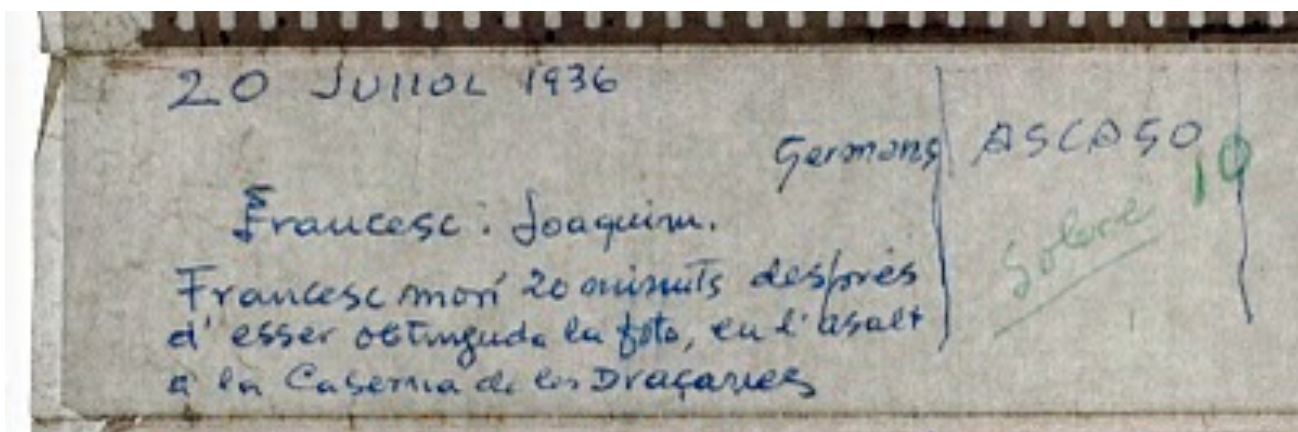 20 JULIOL 1936
Germans ASCASO
10
Francesc i Joaquim.
Sobre
Francesc morí 20 minuts després
d'esser obtinguda la foto, en l'asalt
a la Caserna de les Draçanes